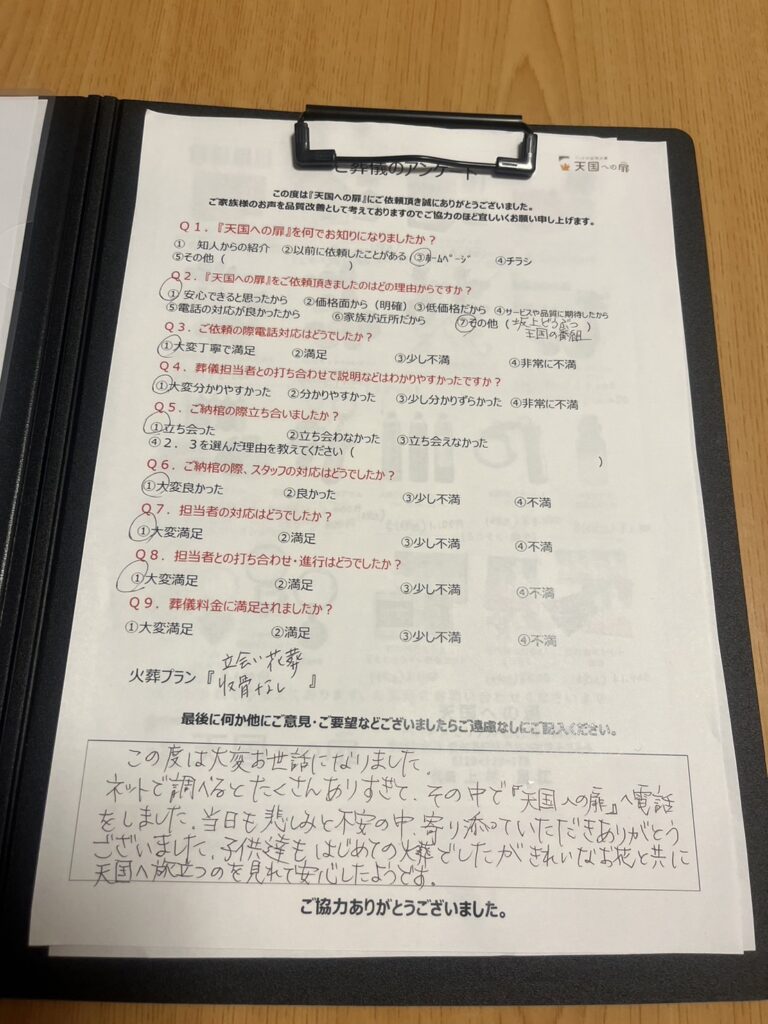 天国への扉
ご葬儀のアンケート
この度は『天国への扉』にご依頼頂き誠にありがとうございました。
ご家族様のお声を品質改善として考えておりますのでご協力のほど宜しいくお願い申し上げます。
Q1.『天国への扉』を何でお知りになりましたか？
① 知人からの紹介 ②以前に依頼したことがある ③ホームページ ④チラシ
⑤その他（ ）
Q2.『天国への扉』をご依頼頂きましたのはどの理由からですか？
①安心できると思ったから ②価格面から（明確）③低価格だから ④サービスや品質に期待したから
⑤電話の対応が良かったから ⑥家族が近所だから ⑦その他（坂上どうぶつ）
王国の番組
Q3.ご依頼の際電話対応はどうでしたか？
①大変丁寧で満足 ②満足 ③少し不満 ④非常に不満
Q4.葬儀担当者との打ち合わせで説明などはわかりやすかったですか？
①大変分かりやすかった ②分かりやすかった ③少し分かりずらかった ④非常に不満
Q5.ご納棺の際立ち合いましたか？
①立ち会った ②立ち会わなかった ③立ち会えなかった
④2．3を選んだ理由を教えてください（ ）
Q6.ご納棺の際、スタッフの対応はどうでしたか？
①大変良かった ②良かった ③少し不満 ④不満
Q7.担当者の対応はどうでしたか？
①大変満足 ②満足 ③少し不満 ④不満
Q8.担当者との打ち合わせ・進行はどうでしたか？
①大変満足 ②満足 ③少し不満 ④不満
Q9.葬儀料金に満足されましたか？
①大変満足 ②満足 ③少し不満 ④不満
立会い花葬
火葬プラン『収骨なし』
最後に何か他にご意見・ご要望などございましたらご遠慮なしにご記入ください。
この度は大変お世話になりました。
ネットで調べるとたくさんありすぎて、その中で『天国への扉』へ電話
をしました。当日も悲しみと不安の中、寄り添っていただきありがとう
ございました。子供達もはじめての火葬でしたがきれいなお花と共に
天国へ旅立つのを見れて安心したようです。
ご協力ありがとうございました。